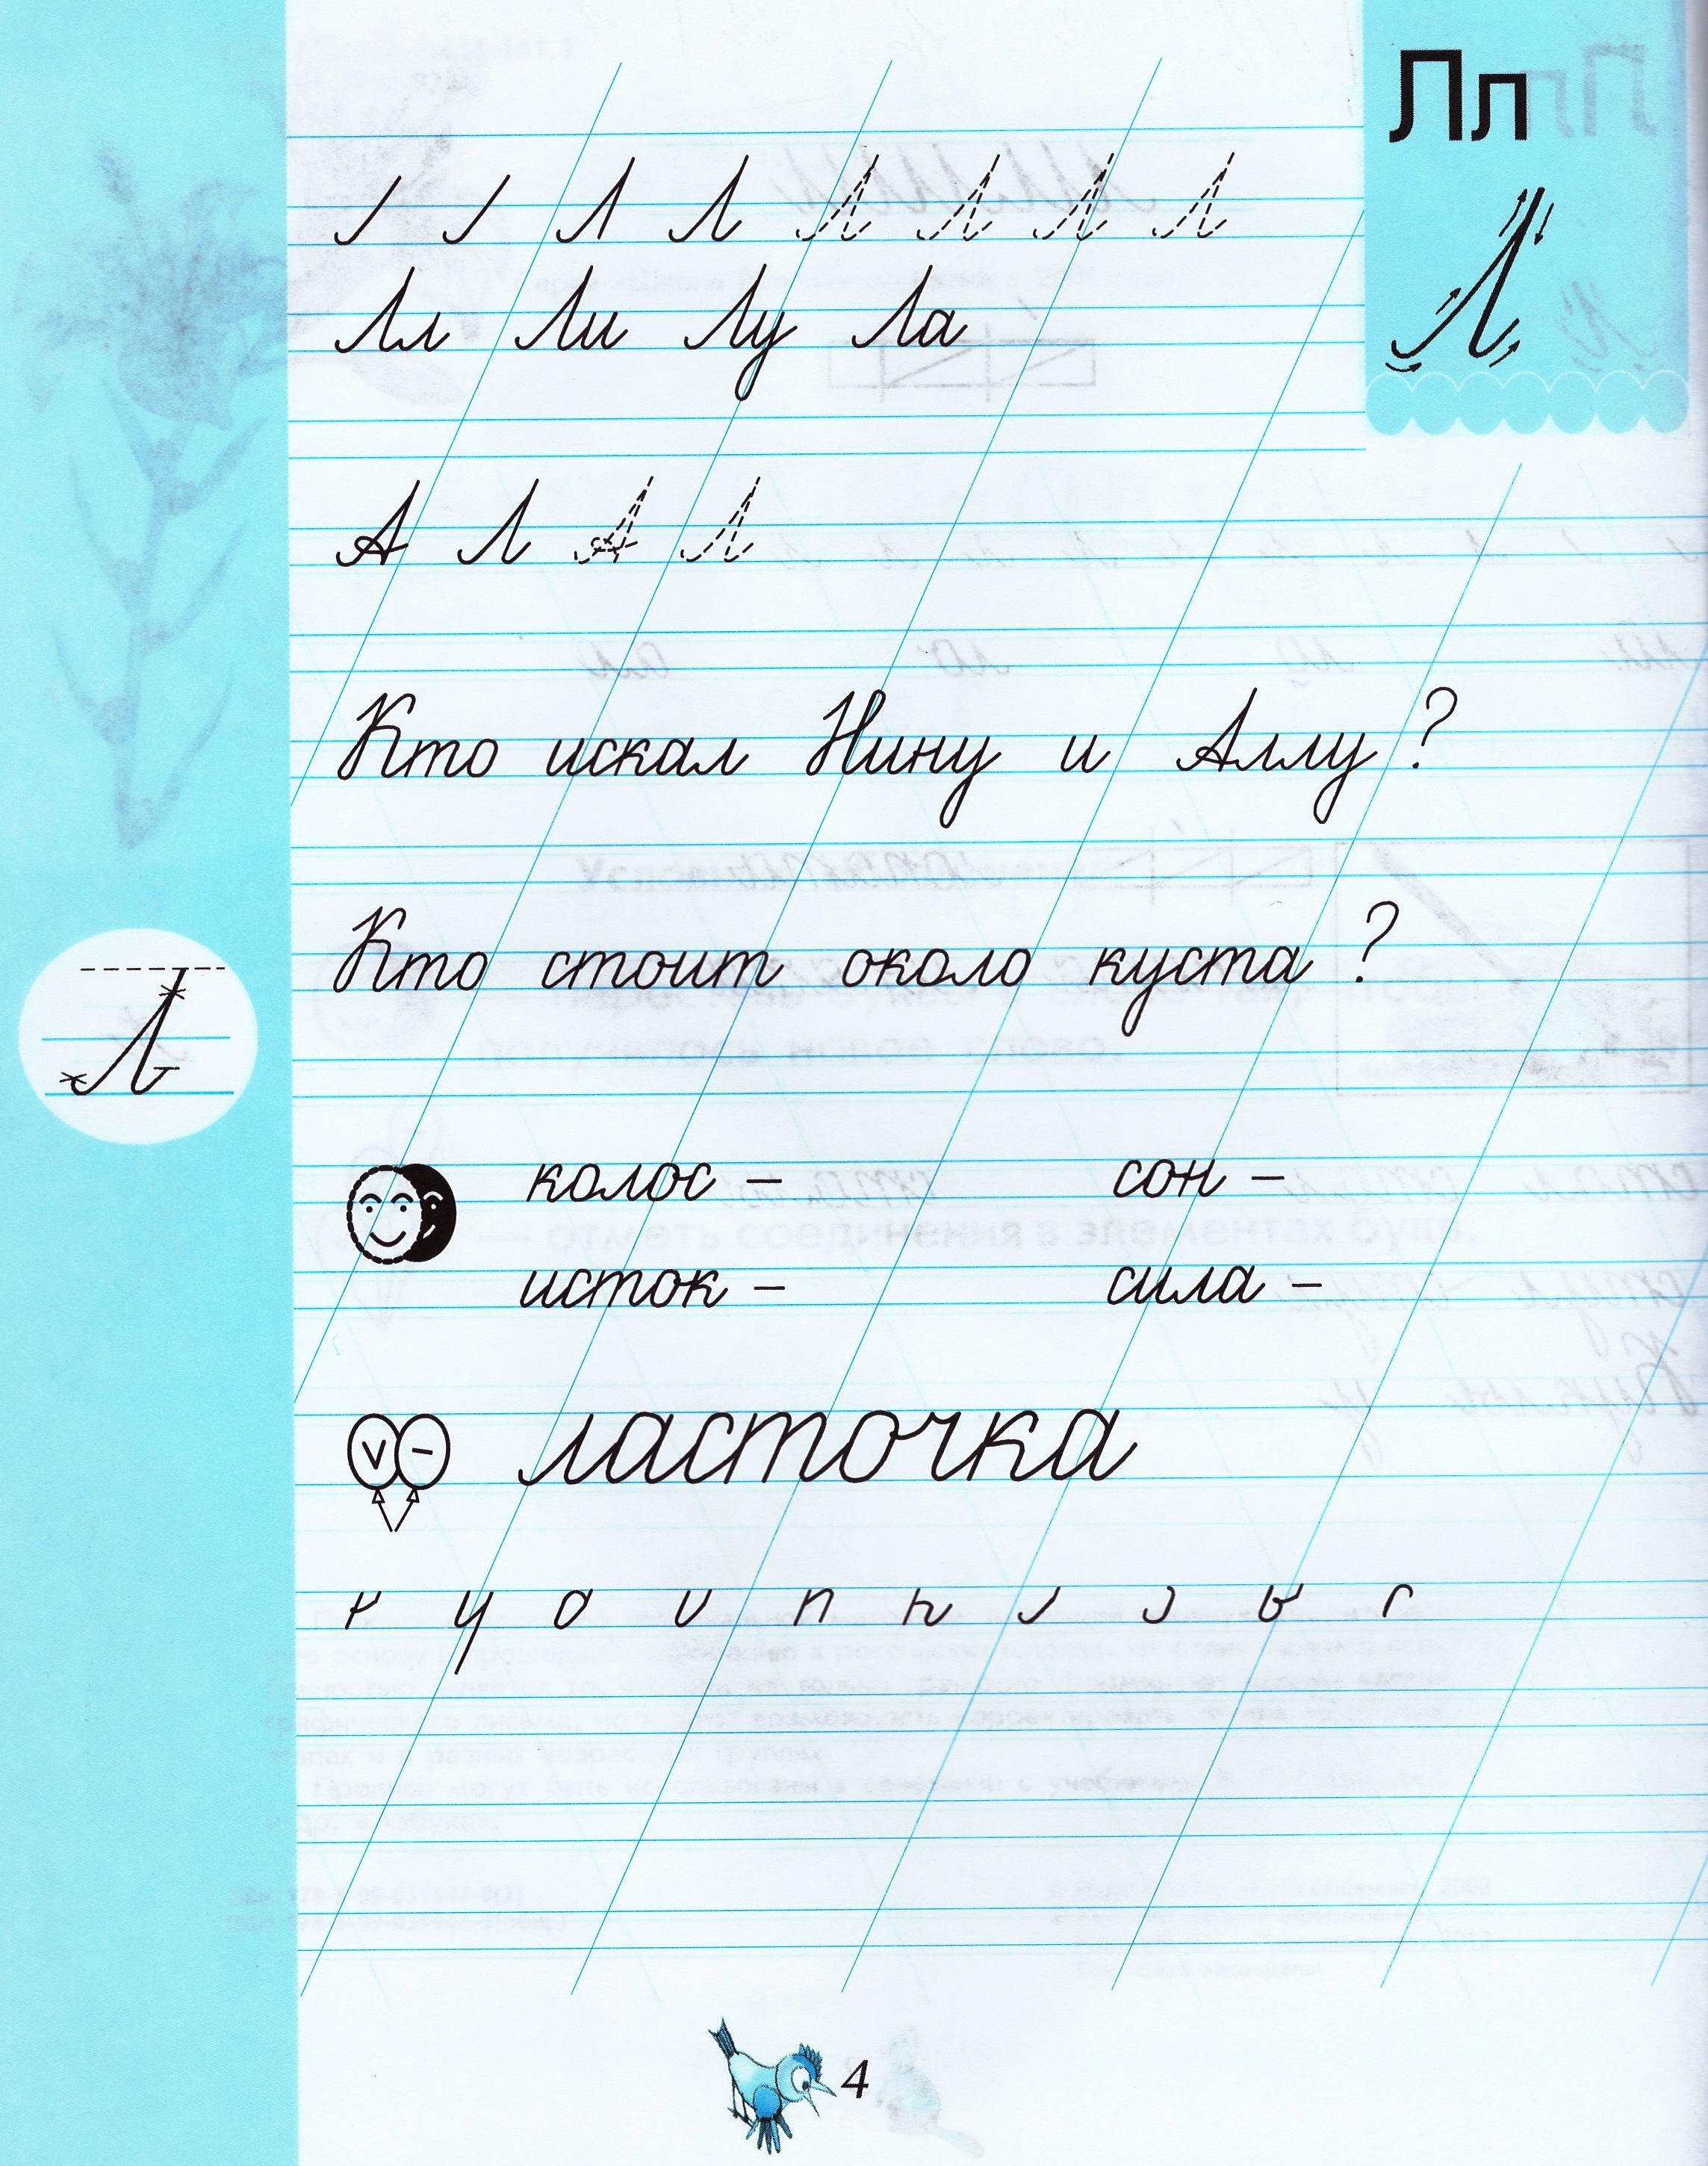 Лл
Л Л Л Л Л Л
Лл Ли Лу Ла
А Л А Л
Кто искал Нину и Аллу?
Кто стоит около куста?
Л
колос – сон –
исток – сила –
ласточка
4